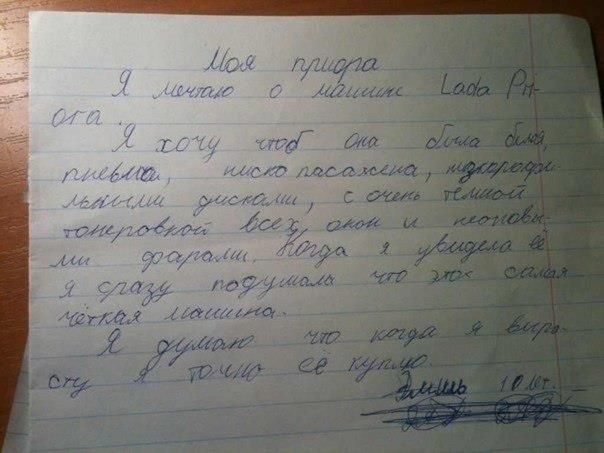 Моя приора
Я мечтаю о машине Lada Pri-
ora.
Я хочу чтоб она была белая,
пневма, ниско пасажена,
льными дисками, с очень тёмной
тонеровкой всех окон и неоновы-
ми фарами. Когда я увидела её
я сразу подумала что это самая
чёткая машина.
Я думаю что когда я выра-
сту я точно её куплю.
10 лет.